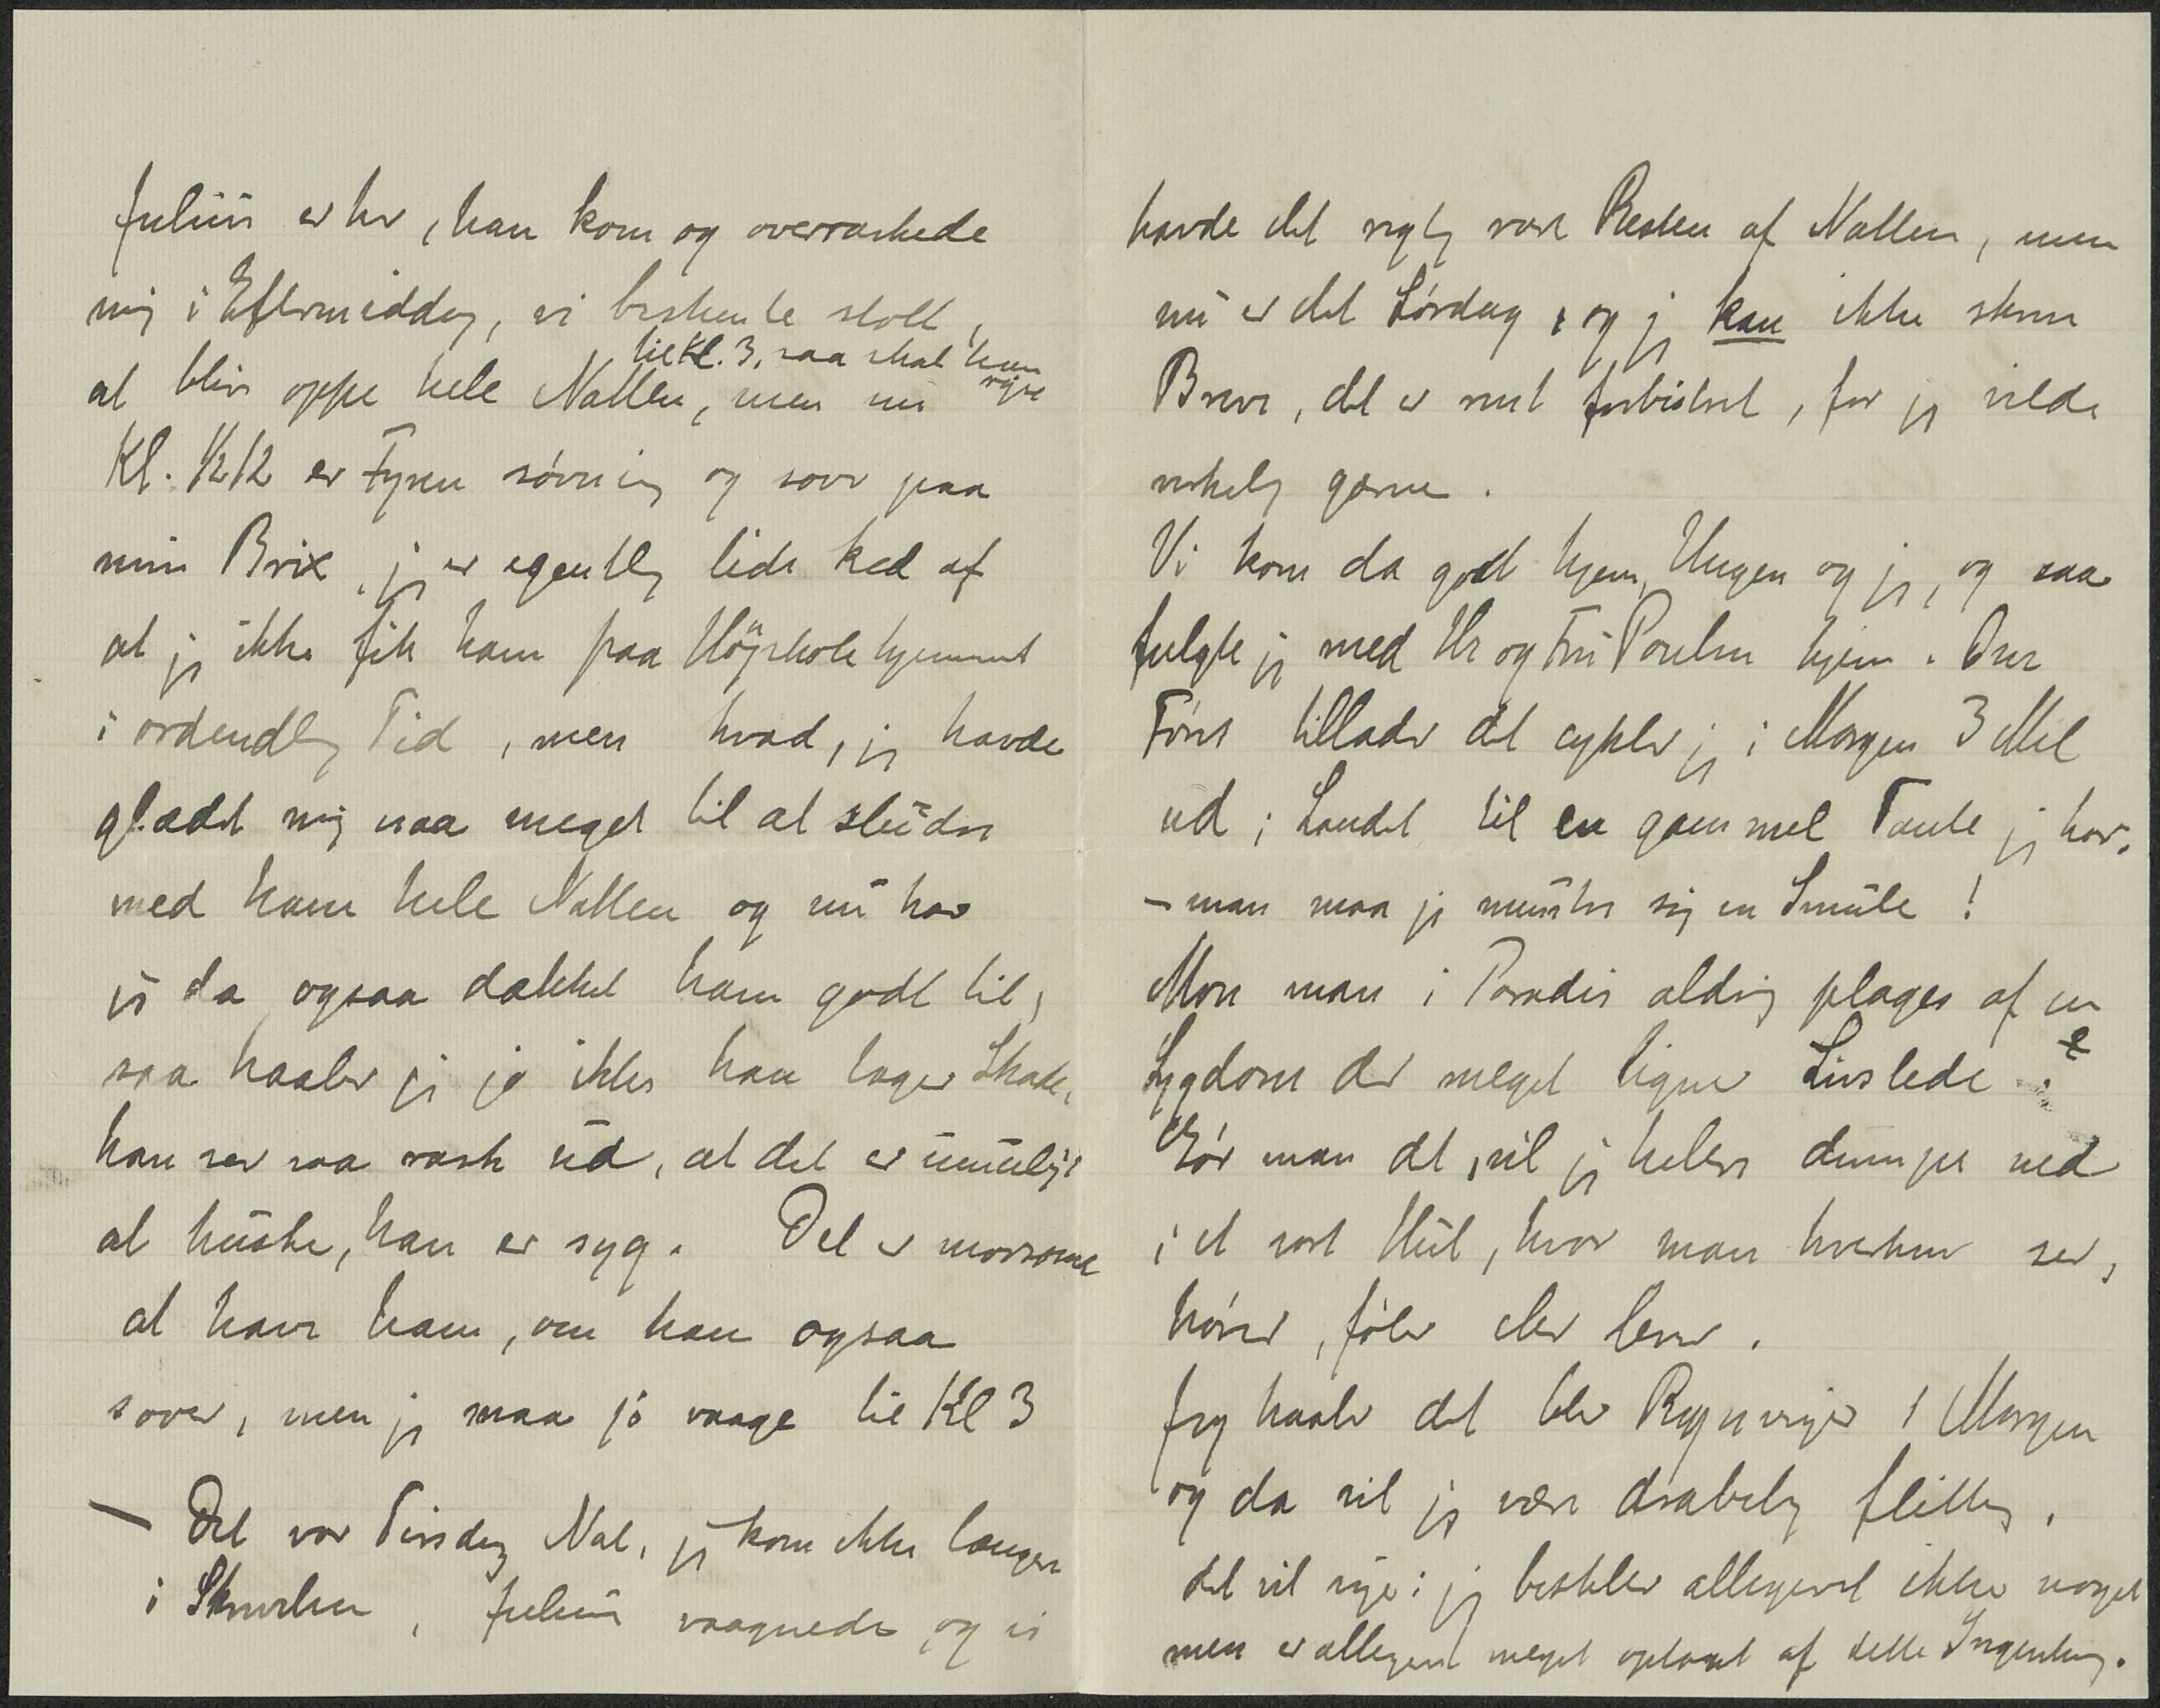 Julius er her, han kom og overraskede
mig i Eftermiddag, vi bestemte stolt,
at blive oppe hele Natten, men nu
til Kl. 3, saa skal han rejse
Kl. 1/2 12 er Fyren søvnig og sover paa
min Brix, jeg er egentlig lidt ked af
at jeg ikke fik ham paa Højskolehjemmet
i ordendlig Tid, men hvad, jeg havde
glædet mig saa meget til at sludre
med ham hele Natten og nu har
jeg da ogsaa dækket ham godt til,
saa haaber jeg jo ikke han tager Skade,
han ser saa rask ud, at det er umuligt
at huske, han er syg. Det er morsomt
at have ham, om han ogsaa
sover, men jeg maa jo vaage til Kl 3
– Det var Tirsdag Nat, jeg kom ikke længere
i Skrivelsen, Julius vaagnede og vi
havde det rigtig rart Resten af Natten, men
nu er det Lørdag, og jeg kan ikke skrive
Breve, det er rent forbistret, for jeg vilde
virkelig gerne.
Vi kom da godt hjem, Ungen og jeg, og saa
fulgte jeg med Hr og Fru Poulsen hjem. Om
Føret tillader det cykler jeg i Morgen 3 Mil
ud i Landet til en gammel Tante jeg har,
– man maa jo muntre sig en Smule!
Mon man i Paradis aldrig plages af en
Sygdom der meget ligner Livslede?
Gør man det, vil jeg hellere dumpe ned
i et sort Hul, hvor man hverken ser,
hører, føler eller lever.
Jeg haaber det blir Regnvejr i Morgen
og da vil jeg være drabelig flittig,
det vil sige: jeg bestiller alligevel ikke noget
men er alligevel meget optaget af dette Ingenting.